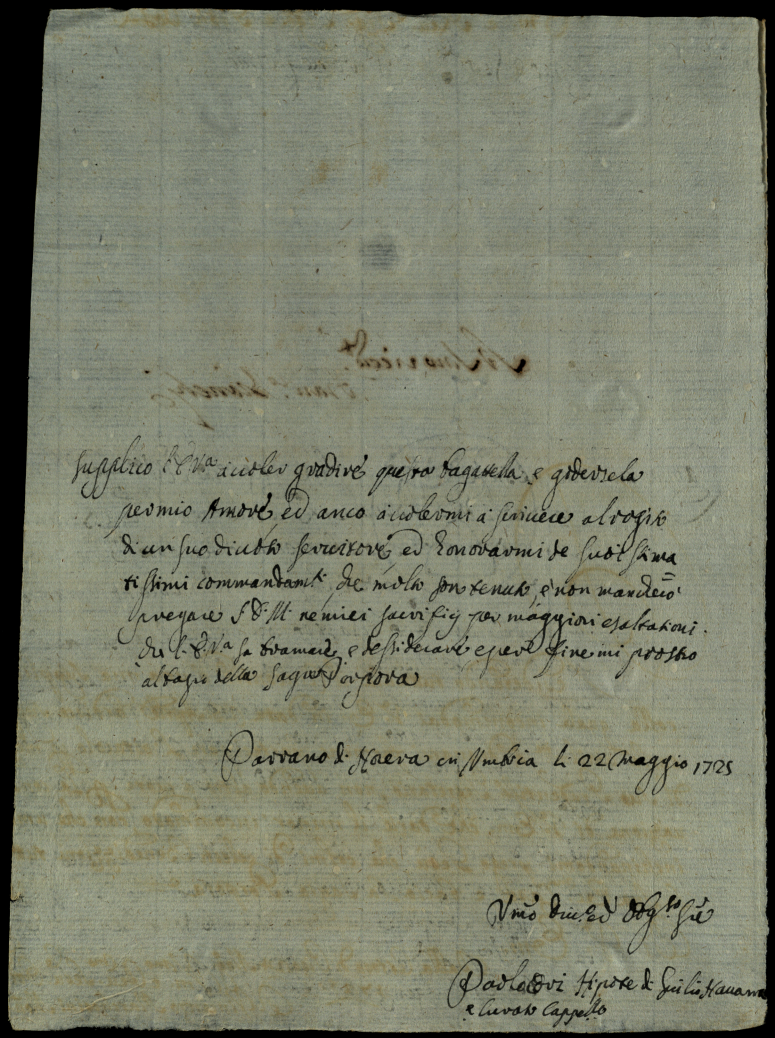 supplico l'E Va à voler gradire questa bagatella, e godersela
per mio Amore, ed anco à volermi à scrivere al rogito
di un suo divoto servitore, ed honorarmi de suoi stima
tissimi commandamti, che molto son tenuto, e non mancherò
pregare S D M ne miei sacrifizij per maggiori esaltationi
che l'E Va sa bramare, e dessiderare e per fine mi prostro
al bagio della sagra Porpora
Parrano di Nocera in Umbria li 22 Maggio 1725
Vmo Div. ed Obgmo Sre
Paolo Nipote di Giulio
e Curato Cappello